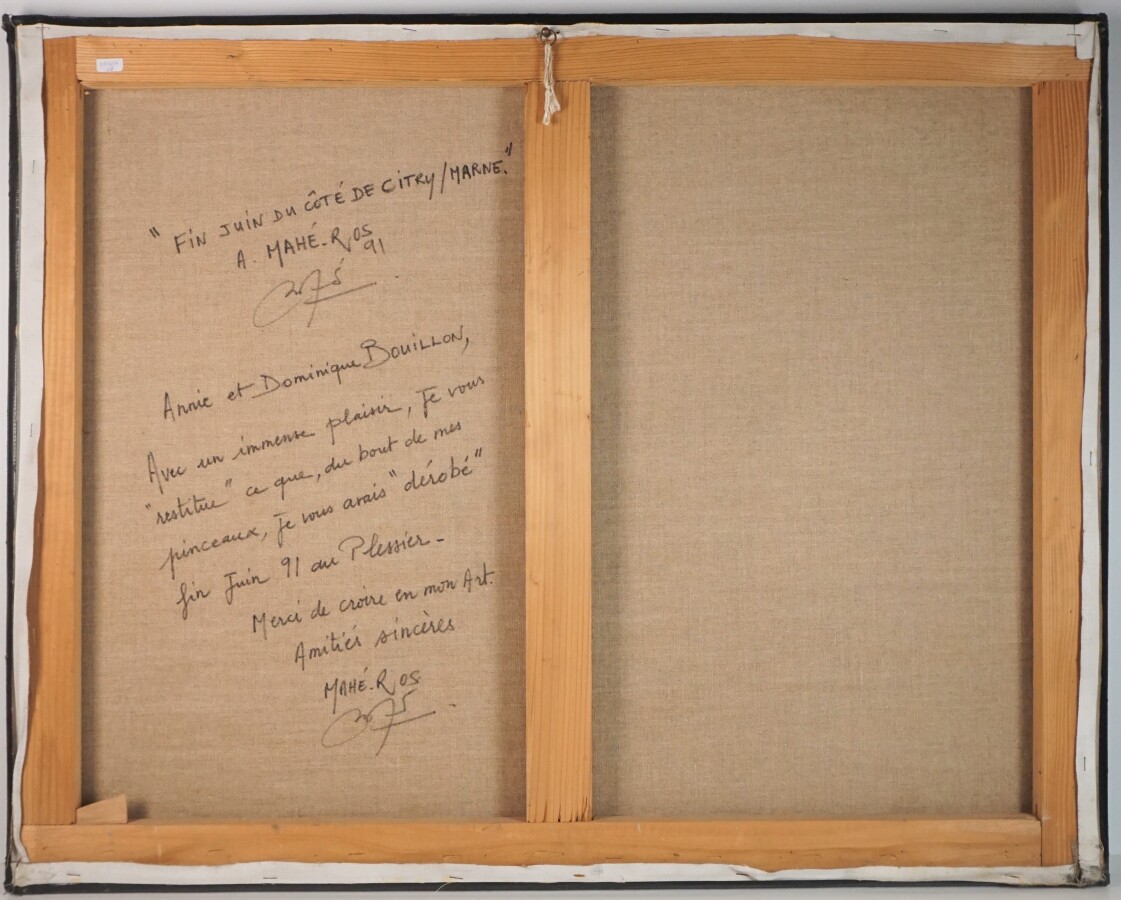 "FiN JUiN DU CÔTÉ DE CiTRY/MARNE."
A. MAHÉ-ROS
91
Annie et Dominique BOUiLLON,
Avec un immense plaisir, Je vous
"restitue" ce que, du bout de mes
pinceaux, Je vous avais "dérobé"
fin Juin 91 au Plessier -
Merci de croire en mon Art.
Amitiés sincères
MAHÉ-ROS